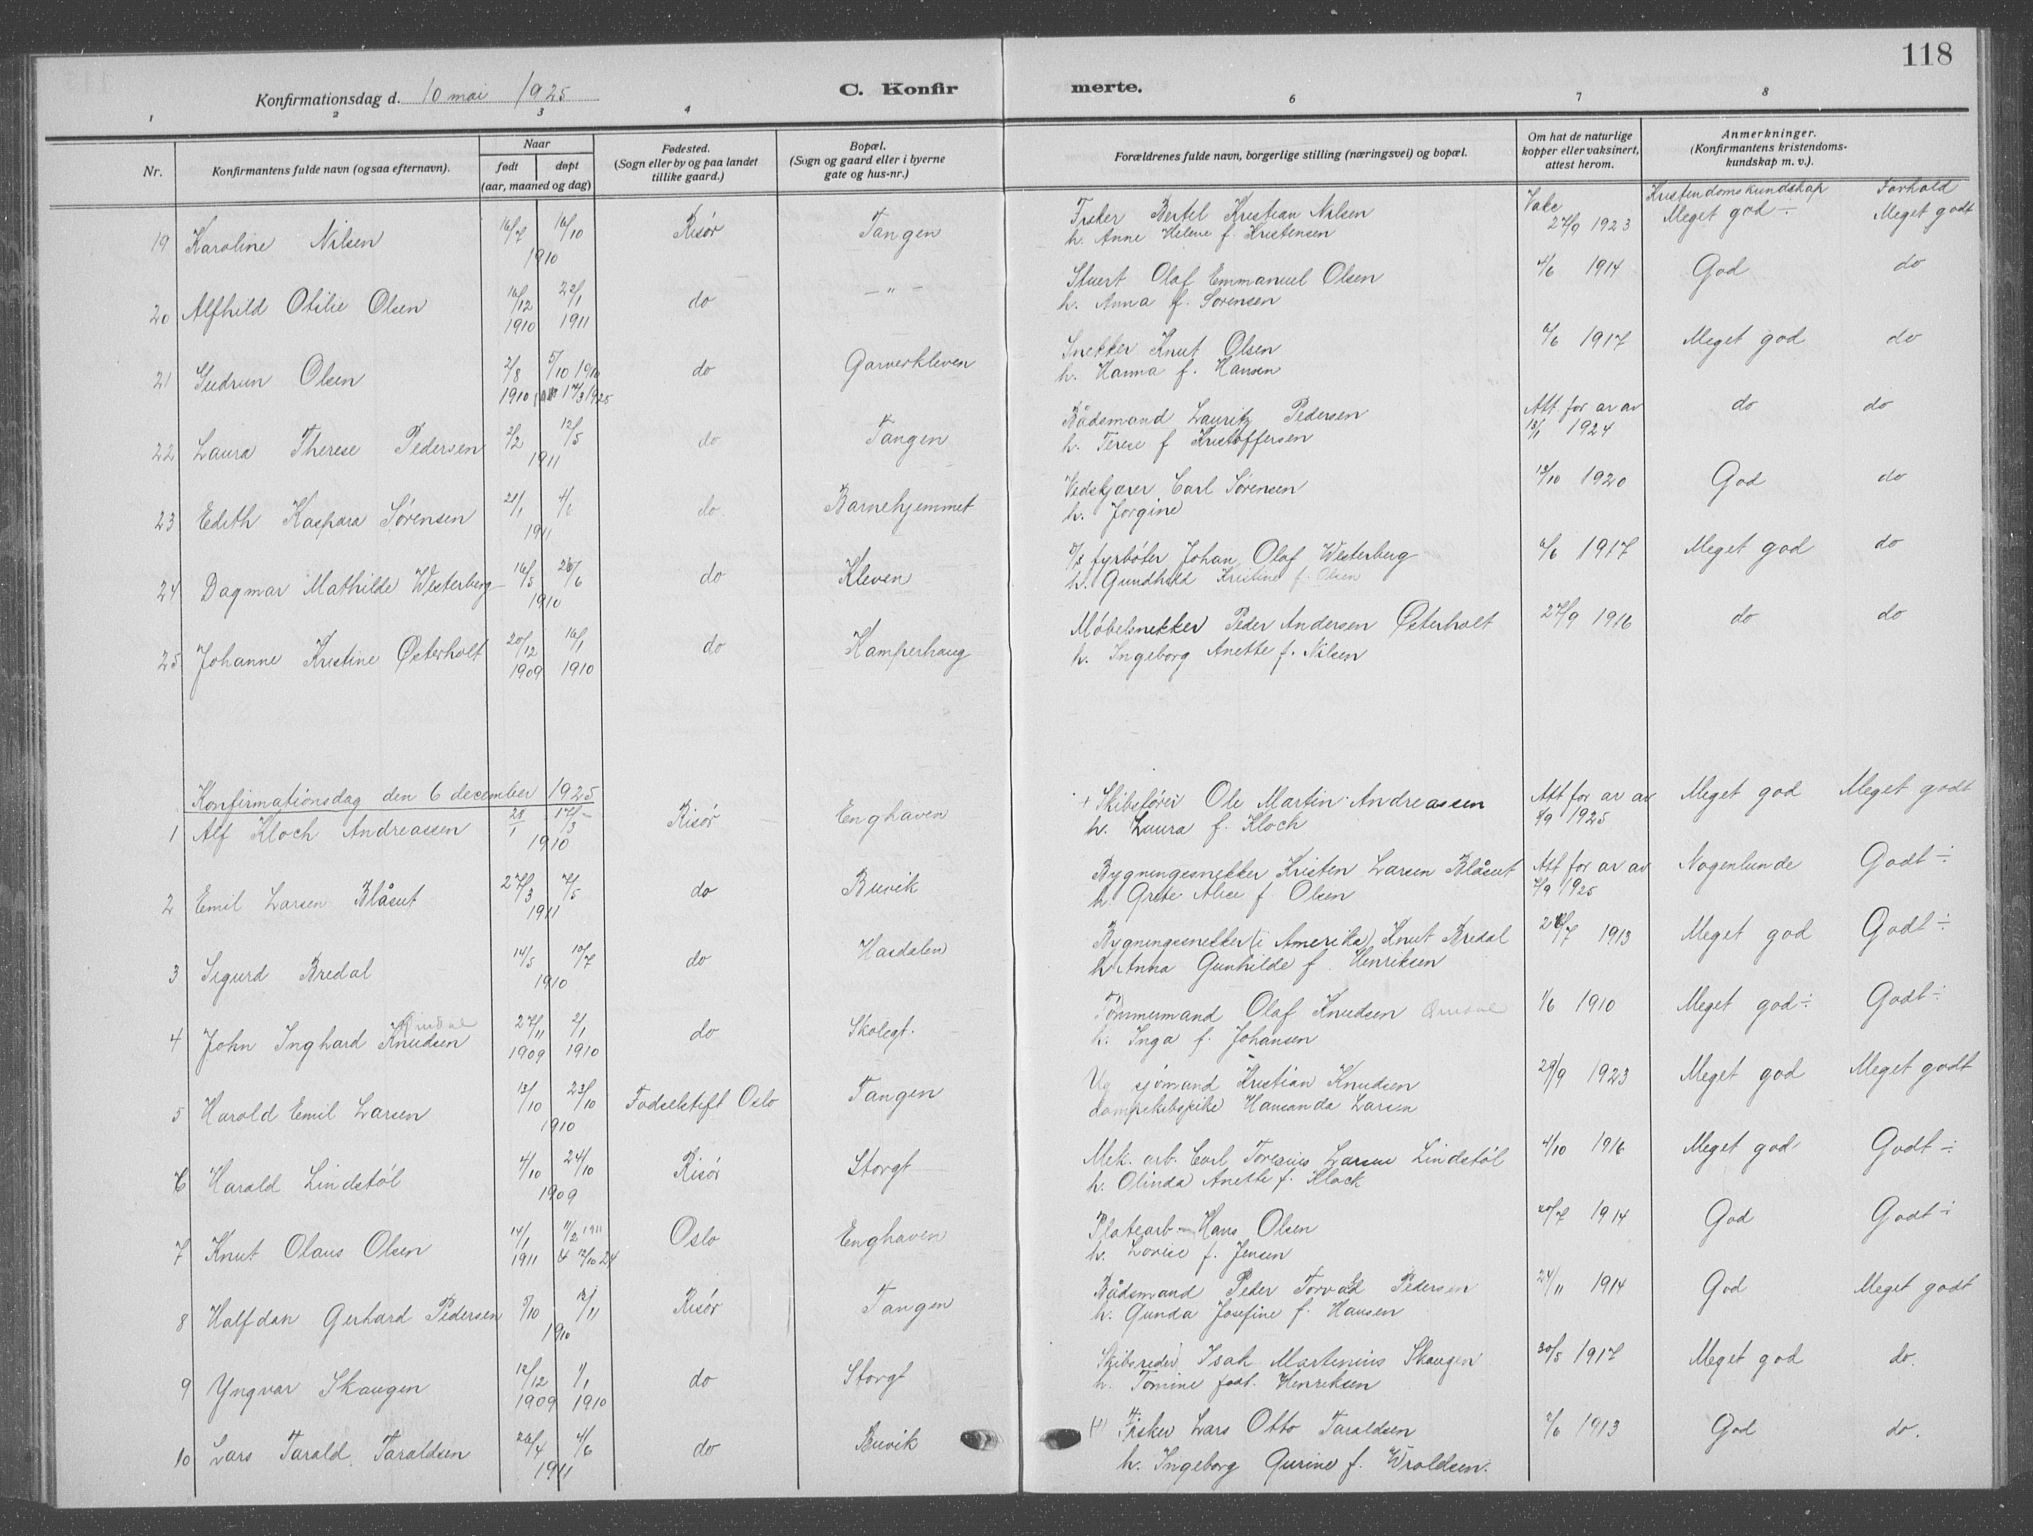 118
Konfirmationsdag d. 10 mai 1925
C. Konfirmerte.
1 2 3 4 6 7 8
Nr. Konfirmantens fulde navn (ogsaa efternavn). Naar født døpt (aar, maaned og dag) Fødested. (Sogn eller by og paa landet tillike gaard.) Bopæl. (Sogn og gaard eller i byerne gate og hus-nr.) Forældrenes fulde navn, borgerlige stilling (næringsvei) og bopæl. Om hat de naturlige kopper eller vaksinert, attest herom. Anmerkninger. (Konfirmantens kristendomskundskap m. v.).
Kristendomskundskap Forhold
19 Karoline Nilsen 16/7 16/10 1910 Risør Tangen Fisker Bertel Kristian Nilsen Vakc 27/9 1923 Meget god ÷ Meget godt
h. Anne Helene f. Kristensen
20 Alfhild Otilie Olsen 16/12 1910 22/1 1911 do — " — Stuert Olaf Emmanuel Olsen 4/6 1914 God do
h. Anna f. Sørensen
21 Gudrun Olsen 2/8 1910 5/10 1910 17/3 1925 do Garverkleven Snekker Knut Olsen 6/6 1917 Meget god do
h. Hanna f. Hansen
22 Laura Therese Pedersen 2/2 12/5 1911 do Tangen Bådsmand Lauritz Pedersen Att for ar av 13/1 1924 do do
h. Terese f Kristoffersen
23 Edith Kaspara Sørensen 21/1 4/6 1911 do. Barnehjemmet Vedskjærer Carl Sørensen 13/10 1920 God do
h. Jørgine
24 Dagmar Mathilde Westerberg 16/5 26/6 1910 do Kleven fyrbøter Johan Olaf Westerberg 6/6 1917 Meget god do
h. Gundhild Kristine f. Olsen
25 Johanne Kristine Østerholt 20/12 1909 16/1 1910 do Kamperhaug Møbelsnekker Peder Andersen Østerholt 27/9 1916 do do
h. Ingeborg Anette f. Nilsen
Konfirmationsdag den 6 december 1925
1 Alf Kloch Andreassen 28/1 17/3 1910 Risør Enghaven + Skibsfører Ole Martin Andreassen Att for ar av 8/9 1925 Meget god Meget godt
h. Laura f. Kloch
2 Emil Larsen Blåsut 27/3 7/5 1911 do Buvik Bygningssnekker Kristen Larsen Blåsut Att for ar av 7/9 1925 Nogenlunde Godt ÷
h Grete Alice f. Olsen
3 Sigurd Bredal 14/5 10/7 1910 do Hasdalen Bygningssnekker (i Amerika) Knut Bredal 28/7 1913 Meget god Godt ÷
h Anna Gunhilde f. Henriksen
4 John Inghard Knudsen 27/11 1909 2/1 1910 do Skolegt. Tømmermand Olaf Knudsen 1/6 1910 Meget god ÷ Godt ÷
h. Inga f. Johansen
5 Harald Emil Larsen 13/10 23/10 1910 Fødselstift Oslo Tangen Ug sjømand Kristian Knudsen 29/9 1923 Meget god Meget godt
dampskibspike Hansanda Larsen
6 Harald Lindstøl 4/10 24/10 1909 Risør Storgt Mek. arb. Carl Toresius Larsen Lindstøl 4/10 1916 Meget god Godt ÷
h. Olinda Anette f. Klock
7 Knut Olaus Olsen 14/1 1911 11/2 1911 & 12/10 24 Oslo Enghaven Platearb — Hans Olsen 20/7 1914 God Godt ÷
h. Lovise f. Jensen
8 Halfdan Gerhard Pedersen 5/10 13/11 1910 Risør Tangen Bådsmand Peder Torvald Pedersen 24/11 1914 God Meget godt
h. Gunda Josefine f. Hansen
9 Yngvar Skaugen 12/12 1909 1/1 1910 do Storgt Skibsreder Isak Martinius Skaugen 30/5 1917 Meget god do.
h. Tomine født. Henriksen
10 Lars Tarald Taraldsen 26/4 4/6 1911 do Buvik Fisker Lars Otto Taraldsen 2/6 1913 God do.
h. Ingeborg Gurine f. Wroldsen.